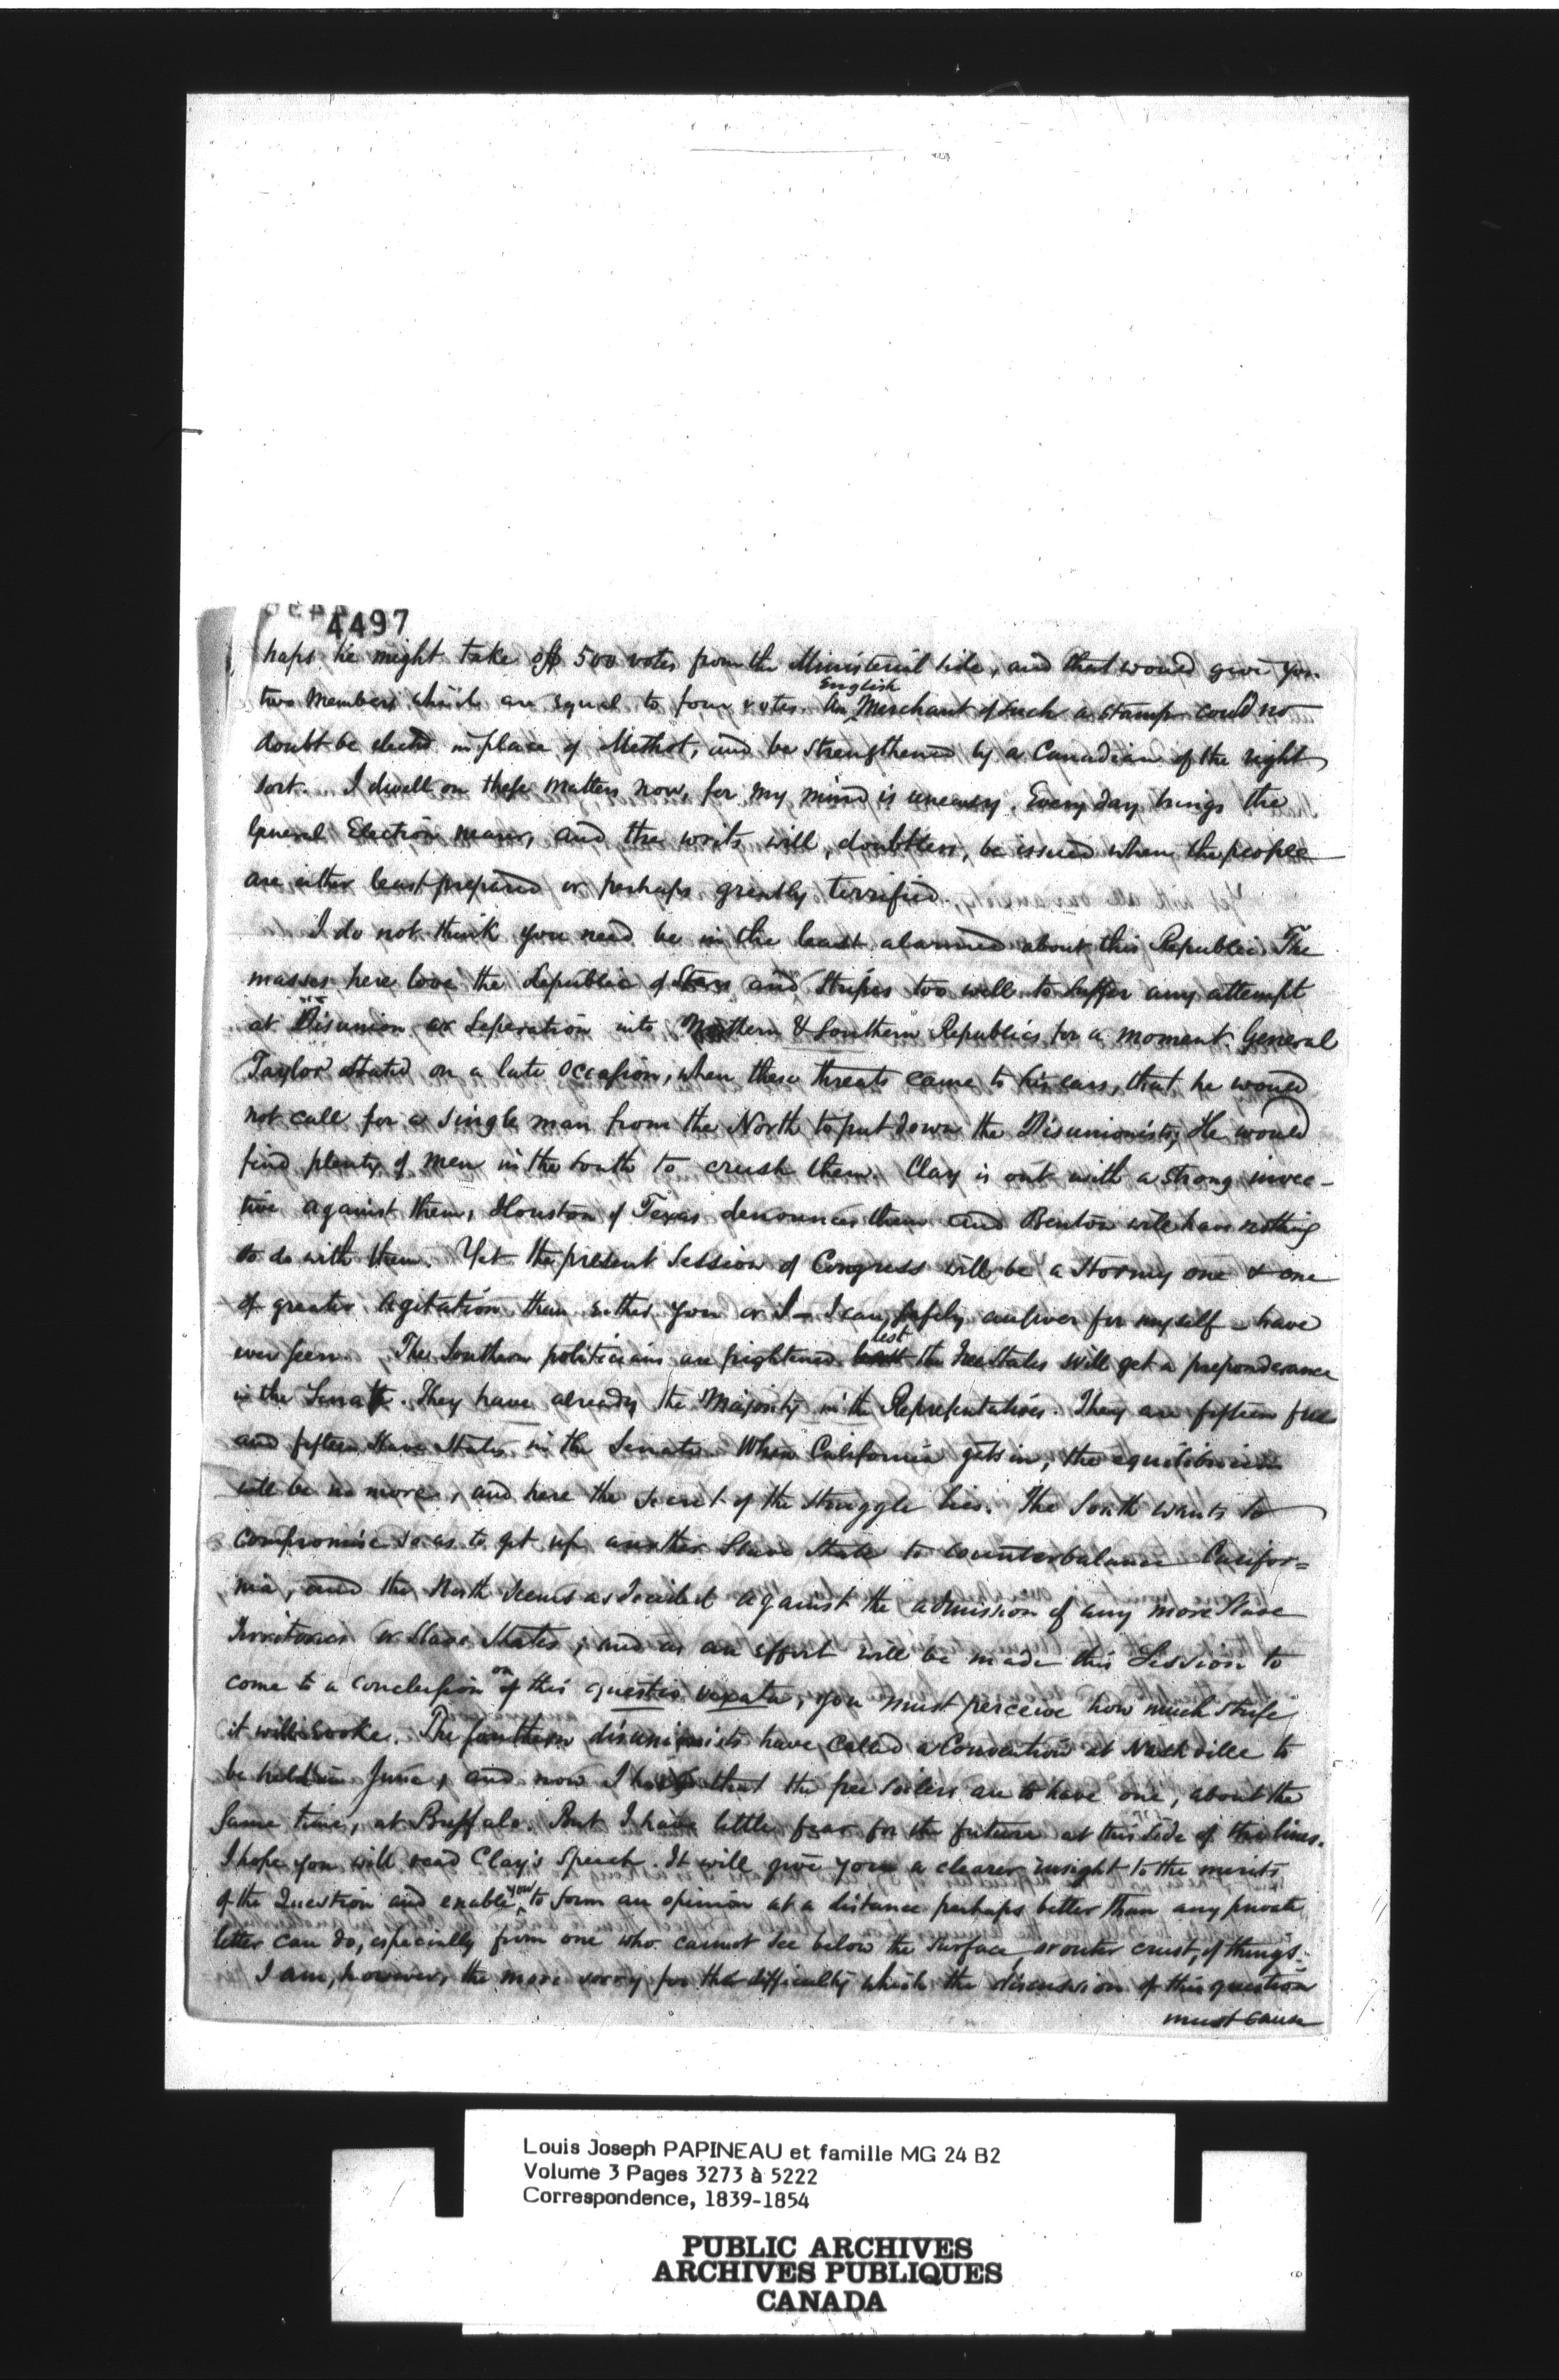 4497
haps he might take off 500 votes from the Ministerial side, and that would give you
two Members which are equal to four votes. An English Merchant of such a stamp could no
doubt be elected in place of Methot, and be strengthened by a Canadian of the right
sort. I dwell on these matters now, for my mind is uneasy. Every day brings the
General Election nearer, and the writs will, doubtless, be issued when the people
are either least prepared or perhaps greatly terrified.
I do not think you need be in the least alarmed about this Republic. The
masses here love the Republic of Stars and Stripes too well to suffer any attempt
at Disunion or Seperation into Northern & Southern Republics for a moment. General
Taylor stated on a late occasion, when these threats came to his ears, that he would
not call for a single man from the North to put down the Disunionists; He would
find plenty of men in the South to crush them. Clay is out with a strong invec-
tive against them, Houston of Texas denounces them and Benton will have nothing
to do with them. Yet the present Session of Congress will be a stormy one & one
of greater agitation than either you or I – I can safely answer for myself – have
ever seen. The Southern politicians are frightened lest the Free States will get a preponderance
in the Senate. They have already the Majority in the Representatives. They are fifteen free
and fifteen Slave States in the Senate. When California gets in, the equilibrium
will be no more, and here the secret of the struggle lies. The South wants to
compromise so as to get up another Slave State to counterbalance Califor=
nia, and the North seems as decided against the admission of any more Slave
Territories or Slave States; and as an effort will be made this Session to
come to a conclusion on this questio vexata, you must perceive how much strife
it will evoke. The Southern disunionists have called a Convention at Nashville to
be held in June, and now I that the free soilers are to have one, about the
same time, at Buffalo. But I have little fear for the future at this side of the lines.
I hope you will read Clay's Speech. It will give you a clearer insight to the merits
of the Question and enable you to form an opinion at a distance perhaps better than any private
letter can do, especially from one who cannot see below the surface, or outer crust, of things.
I am, however, the more sorry for the difficulty which the discussion of this question
must cause
Louis Joseph PAPINEAU et famille MG 24 B2
Volume 3 Pages 3273 à 5222
Correspondence, 1839-1854
PUBLIC ARCHIVES
ARCHIVES PUBLIQUES
CANADA